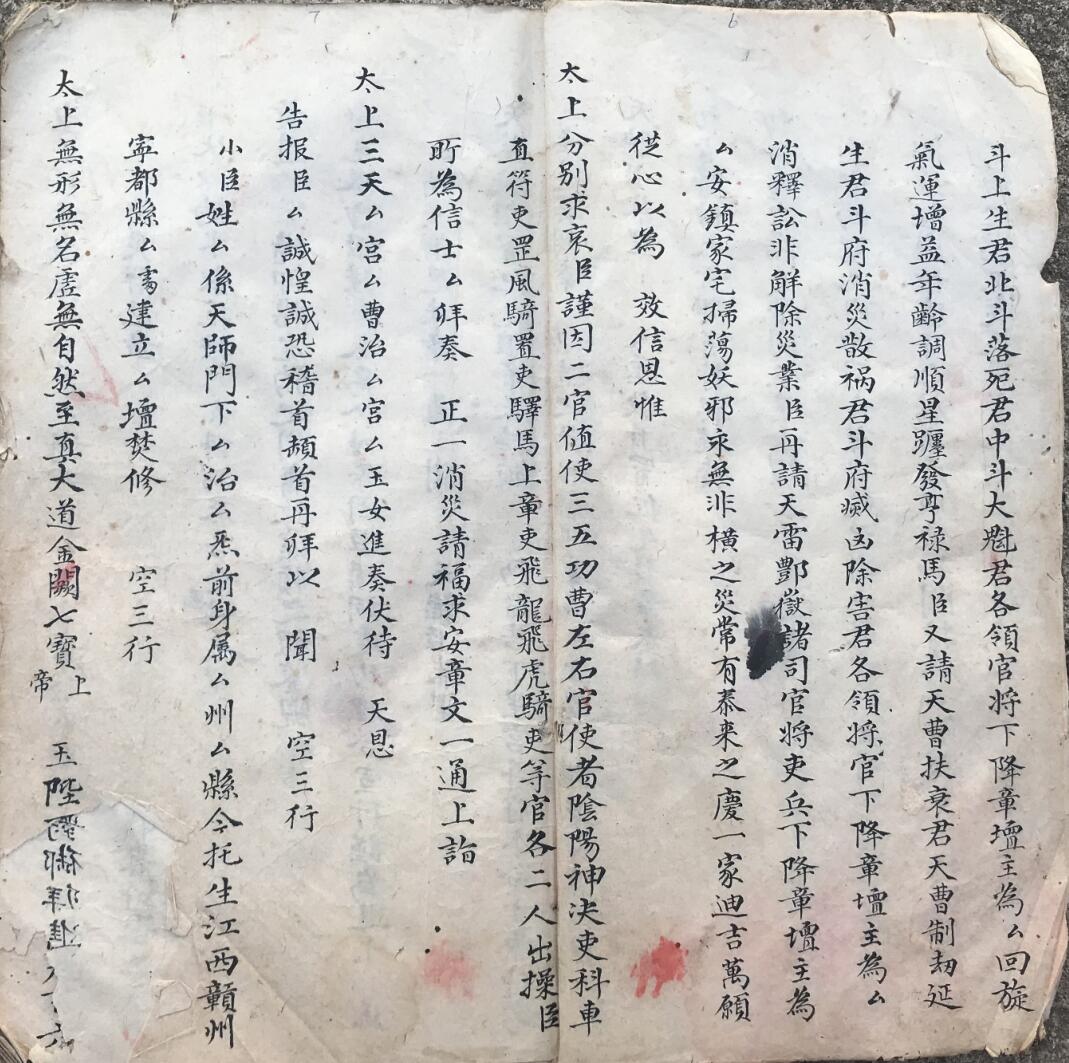 斗上生君北斗落死君中斗大魁君各領官将下降章壇主為厶回旋
氣運增益年齡調順星躔發亨禄馬臣又請天曹扶衰君天曹制刼延
生君斗府消災散禍君斗府滅凶除害君各領将官下降章壇主為厶
消釋訟非解除災業臣再請天雷酆嶽諸司官将吏兵下降章壇主為
厶安鎮家宅掃蕩妖邪永無非橫之災常有泰来之慶一家迪吉萬願
從心以為 效信恩惟
太上分別求哀臣謹因二官值使三五功曹左右官使者陰陽神决吏科車
直符吏罡風騎置吏驛馬上章吏飛龍飛虎騎吏等官各二人出操臣
所為信士厶拜奏 正一消災請福求安章文一通上詣
太上三天厶宮厶曹治厶宮厶玉女進奏伏待 天恩
告报臣厶誠惶誠恐稽首頓首再拜以 聞 空三行
小臣姓厶係天師門下厶治厶炁前身属厶州厶縣今托生江西贛州
寧都縣厶 建立厶壇焚修 空三行
太上無形無名虛無自然至真大道金闕七寶上帝 玉陛 御 進
7
6